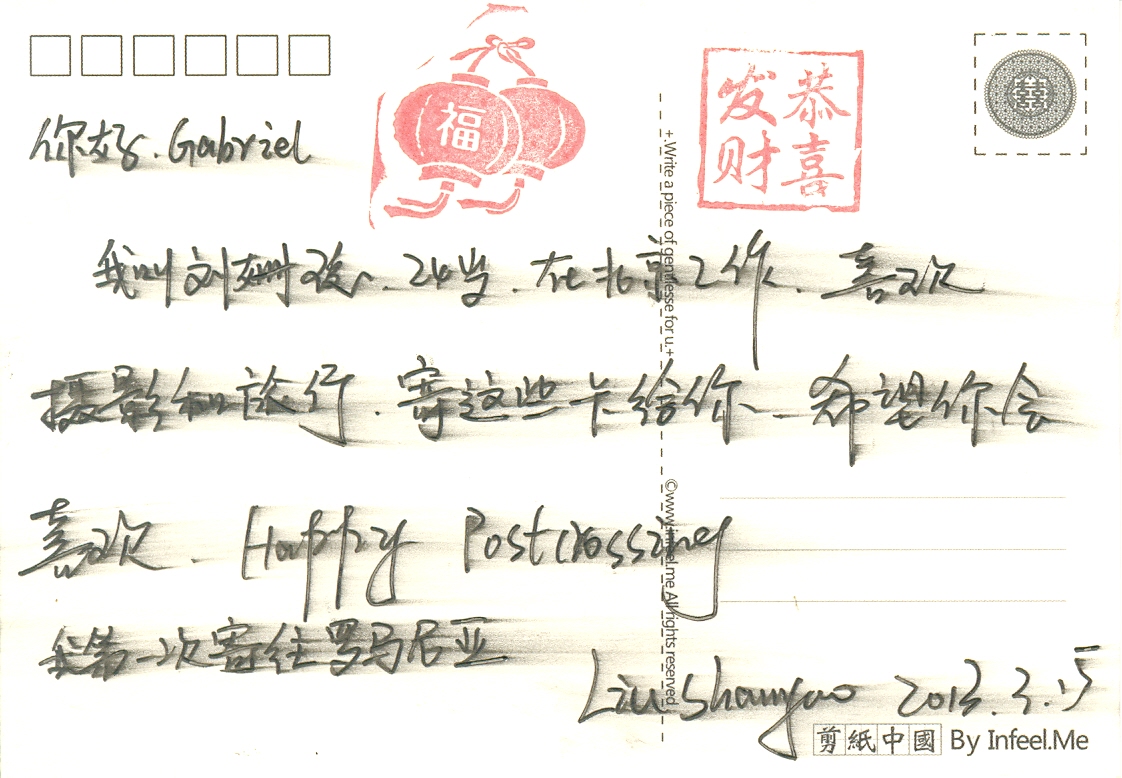 福
恭喜
发财
囍
你好、Gabriel
+.Write a piece of gentlesse for u.+
我叫刘姗姚、24岁、在北京工作、喜欢
摄影和旅行、寄这些卡给你、希望你会
喜欢、Happy Postcrossing
©www.infeel.me All rights reserved
我第一次寄往罗马尼亚
Liu Shanyao 2013.3.15
剪紙中國 By Infeel.Me